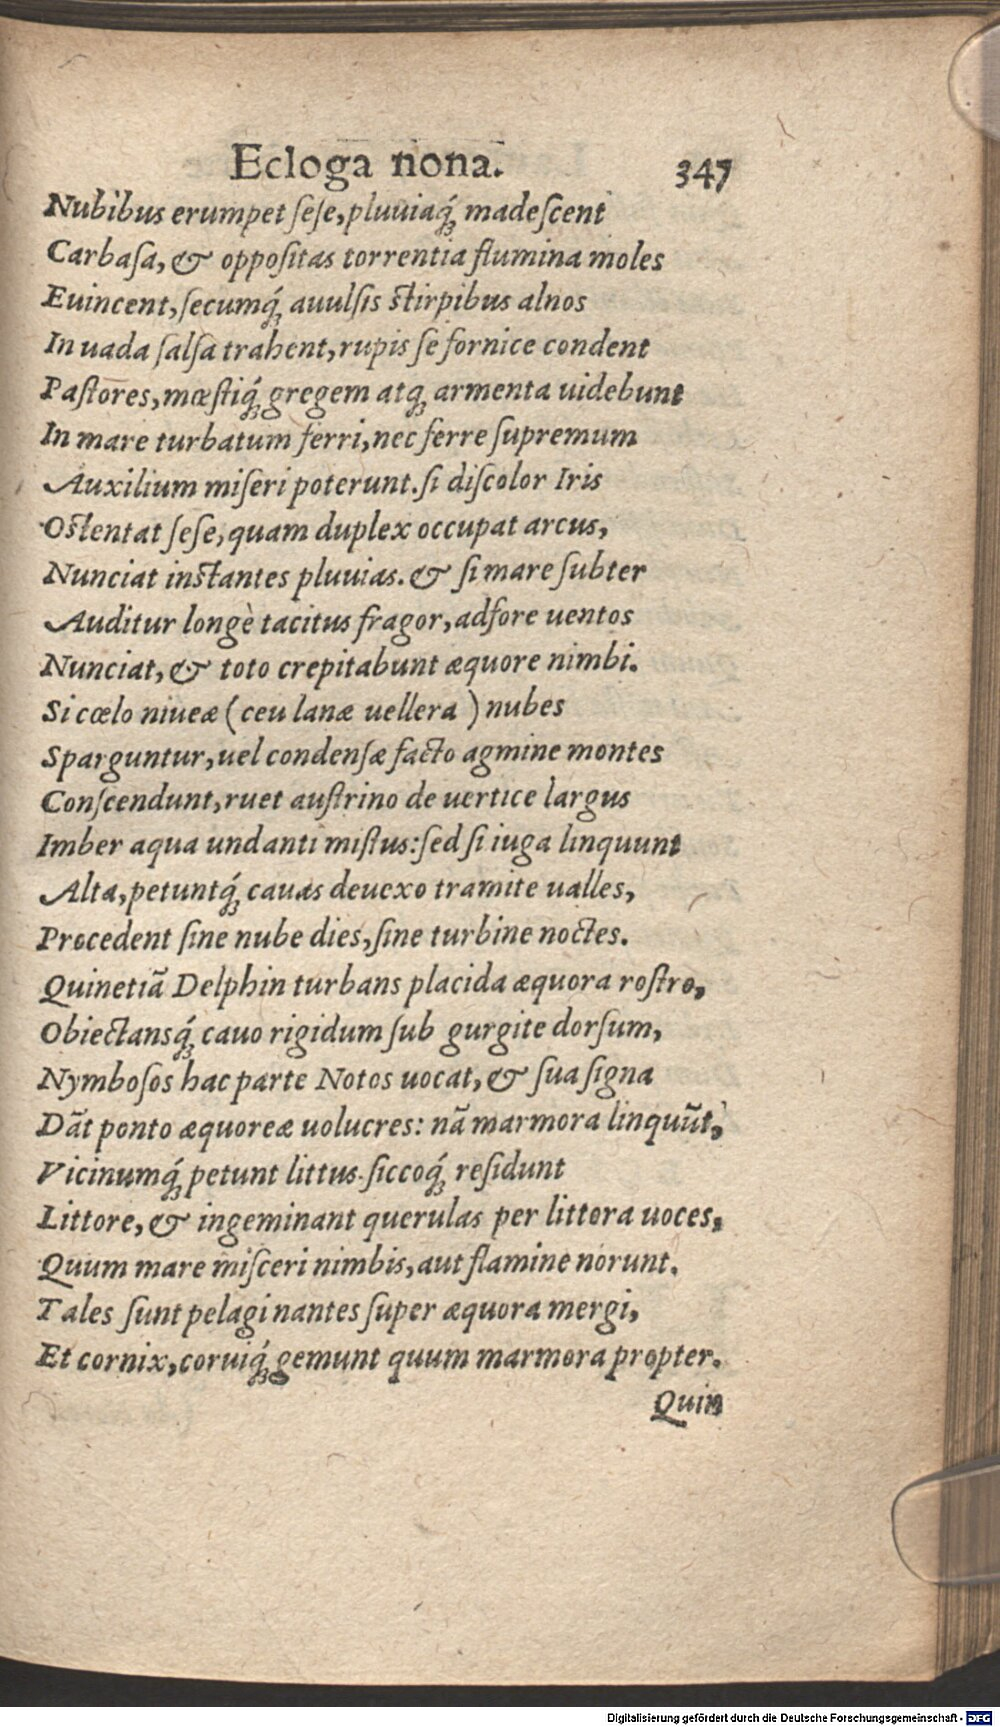 Ecloga nona. 347
Nubibus erumpet ſeſe, pluuiaq́ꝫ madeſcent
Carbaſa, & oppoſitas torrentia flumina moles
Euincent, ſecumq́ꝫ auulſis ſtirpibus alnos
In uada ſalſa trahent, rupis ſe fornice condent
Paſtores, mœſtiq́ꝫ gregem atqꝫ armenta uidebunt
In mare turbatum ferri, nec ferre ſupremum
Auxilium miſeri poterunt. ſi diſcolor Iris
Oſtentat ſeſe, quam duplex occupat arcus,
Nunciat inſtantes pluuias. & ſi mare ſubter
Auditur longè tacitus fragor, adfore uentos
Nunciat, & toto crepitabunt æquore nimbi.
Si cœlo niueæ (ceu lanæ uellera) nubes
Sparguntur, uel condenſæ facto agmine montes
Conſcendunt, ruet auſtrino de uertice largus
Imber aqua undanti miſtus: ſed ſi iuga linquunt
Alta, petuntq́ꝫ cauas deuexo tramite ualles,
Procedent ſine nube dies, ſine turbine noctes.
Quinetiã Delphin turbans placida æquora roſtro,
Obiectansq́ꝫ cauo rigidum ſub gurgite dorſum,
Nymboſos hac parte Notos uocat, & ſua ſigna
Dãt ponto æquoreæ uolucres: nã marmora linquũt,
Vicinumq́ꝫ petunt littus. ſiccoq́ꝫ reſidunt
Littore, & ingeminant querulas per littora uoces,
Quum mare miſceri nimbis, aut flamine norunt.
Tales ſunt pelagi nantes ſuper æquora mergi,
Et cornix, coruiq́ꝫ gemunt quum marmora propter.
Quin
Digitalisierung gefördert durch die Deutsche Forschungsgemeinschaft - DFG